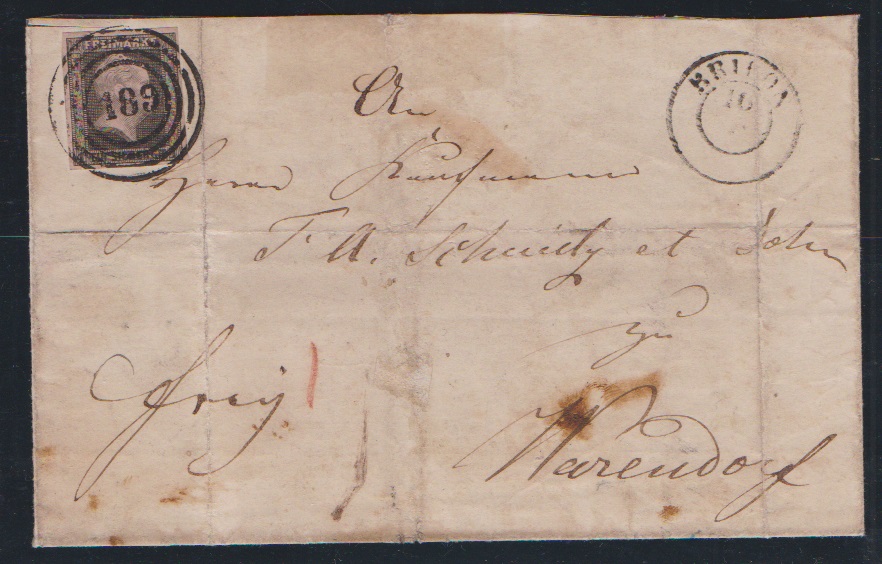 FREIMARKE
189
BRILON
16
An
Herrn Kaufmann
F. A. Schmidtz et Sohn
zu
frey
Warendorf